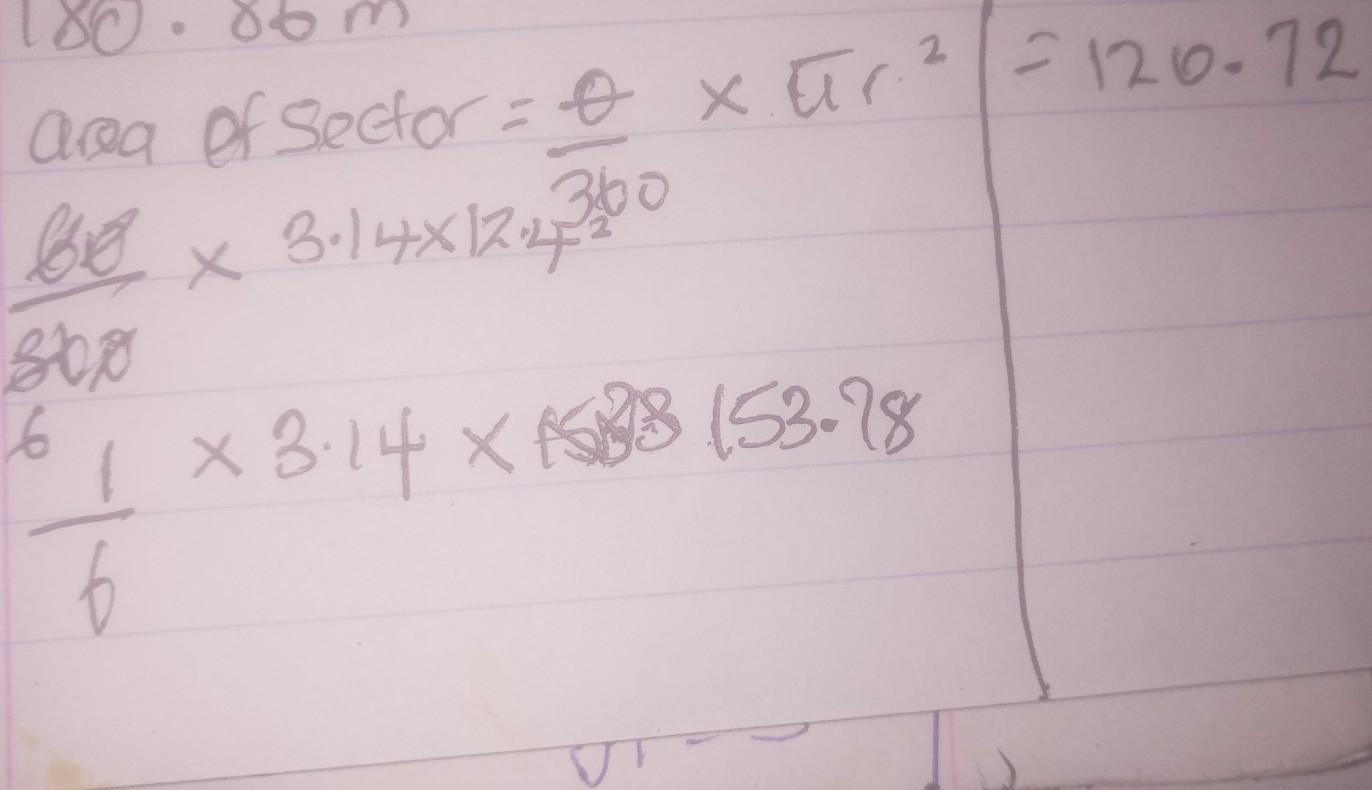 180.86 m
area of Sector = θ/360 × πr.² = 120.72
60/360 × 3.14×12.4²
6
1/6 × 3.14 × 153.78